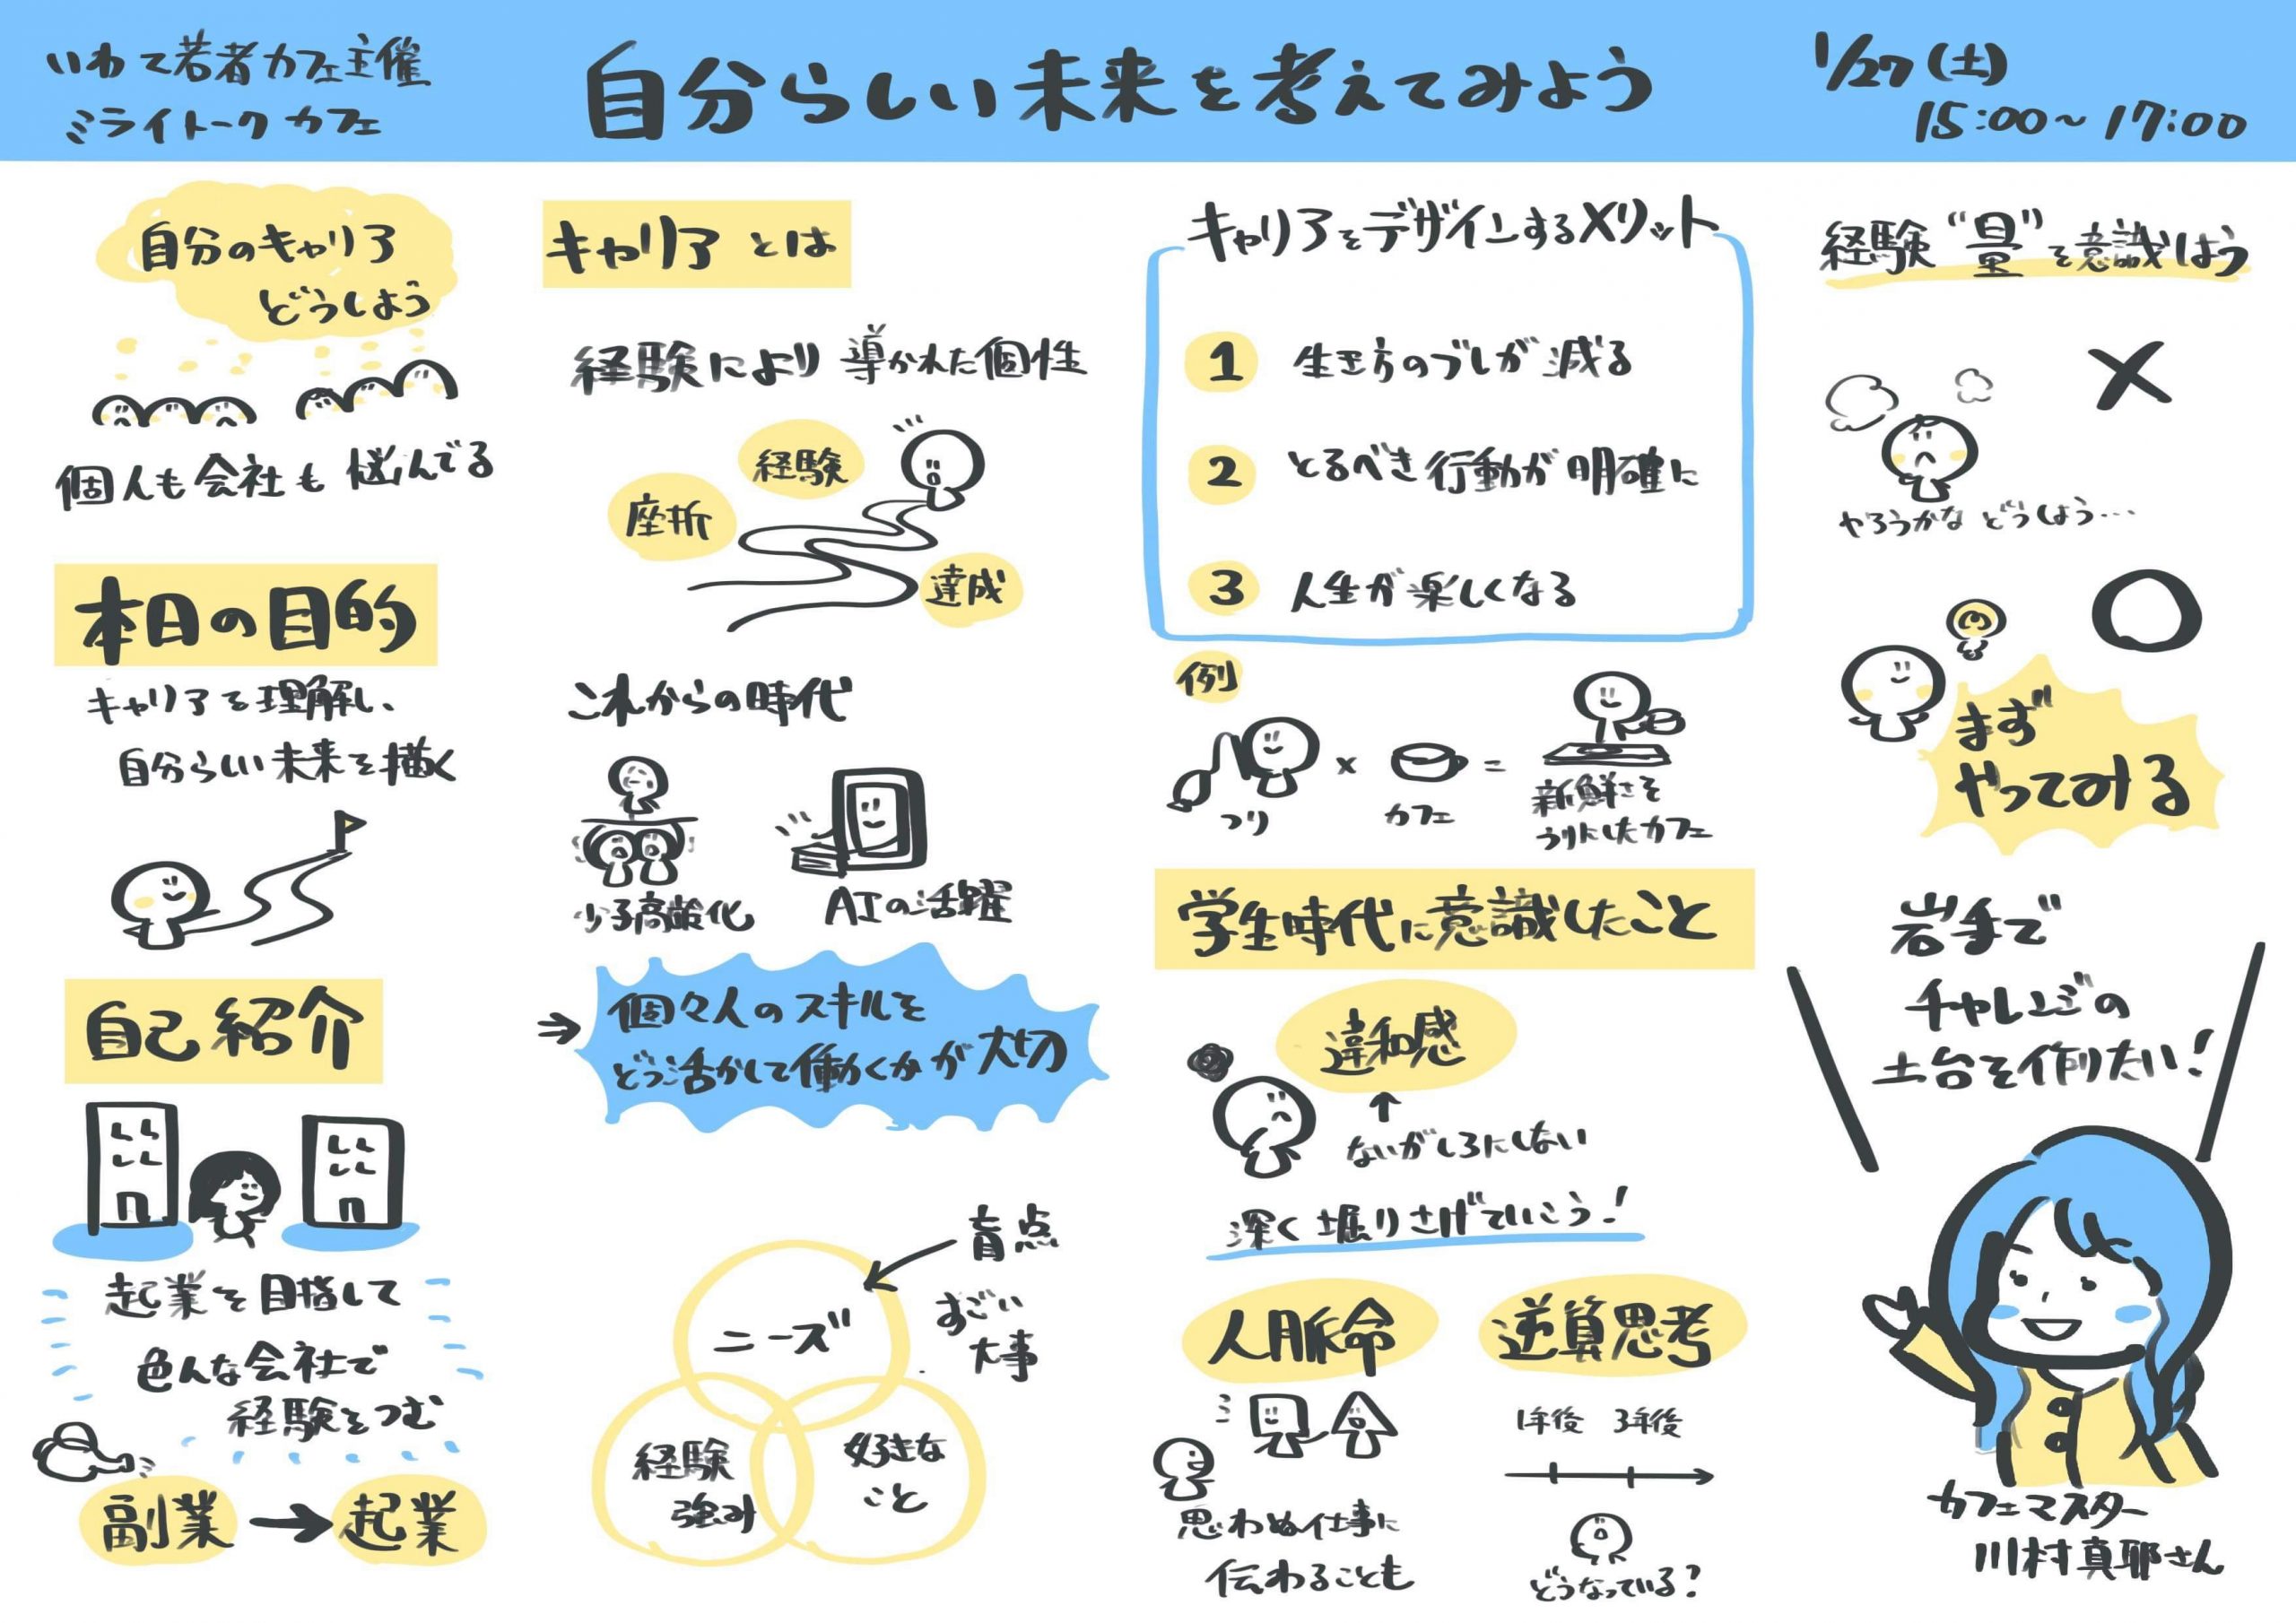 いわて若者カフェ主催
ミライトークカフェ
自分らしい未来を考えてみよう
1/27(土)
15:00~17:00
自分のキャリア
どうしよう
個人も会社も悩んでる
本日の目的
キャリアを理解し、
自分らしい未来を描く
自己紹介
起業を目指して
色んな会社で
経験をつむ
副業→起業
キャリアとは
経験により導かれた個性
経験
座折
達成
これからの時代
少子高齢化
AIの活躍
⇒
個々人のスキルを
どう活かして働くかが大切
盲点
すごい
大事
ニーズ
経験
強み
好きな
こと
キャリアをデザインするメリット
1 生き方のブレが減る
2 とるべき行動が明確に
3 人生が楽しくなる
例
つり
×
カフェ
=
新鮮さを
うりにしたカフェ
学生時代に意識したこと
違和感
↑
ないがしろにしない
深く堀りさげていこう!
人脈命
思わぬ仕事に
伝わることも
逆算思考
1年後 3年後
どうなっている?
経験“量”を意識しよう
×
やろうかな どうしよう…
○
まず
やってみる
岩手で
チャレンジの
土台を作りたい!
カフェマスター
川村真耶さん